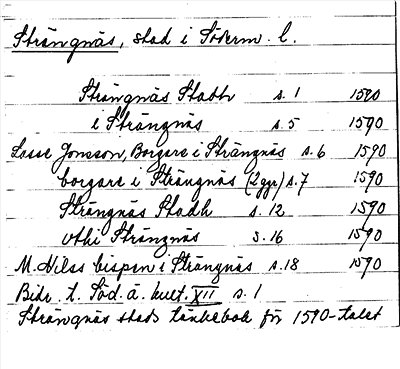 Strängnäs, stad i Söderm. l.
Strängnäs Stadh s. 1 1590
i Strängnäs s. 5 1590
Lasse Jonsson, Borgare i Strängnäs s. 6 1590
borgare i Strängnäs (2 ggr) s. 7 1590
Strängnäs Stadh s. 12 1590
uthi Strängnäs s. 16 1590
M. Nilss bispen i Strängnäs s. 18 1590
Bidr. t. Söd. ä. kult. XII s. 1
Strängnäs stads tänkebok för 1590-talet